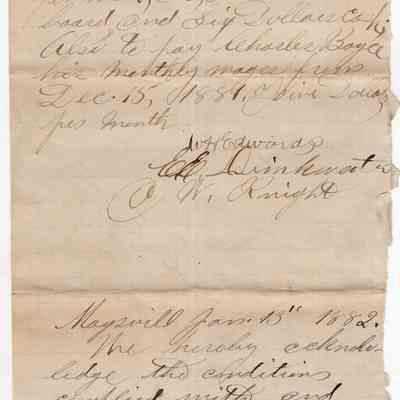 board and Six Dollars
Also to pay Charles Boyce
his monthly wages from
Dec. 15, 1881, five
per month
W H Edwards
Drinkwater
W. Knight
Maysvill Jan. 13" 1882.
We hereby acknow-
ledge the conditions
complied with and